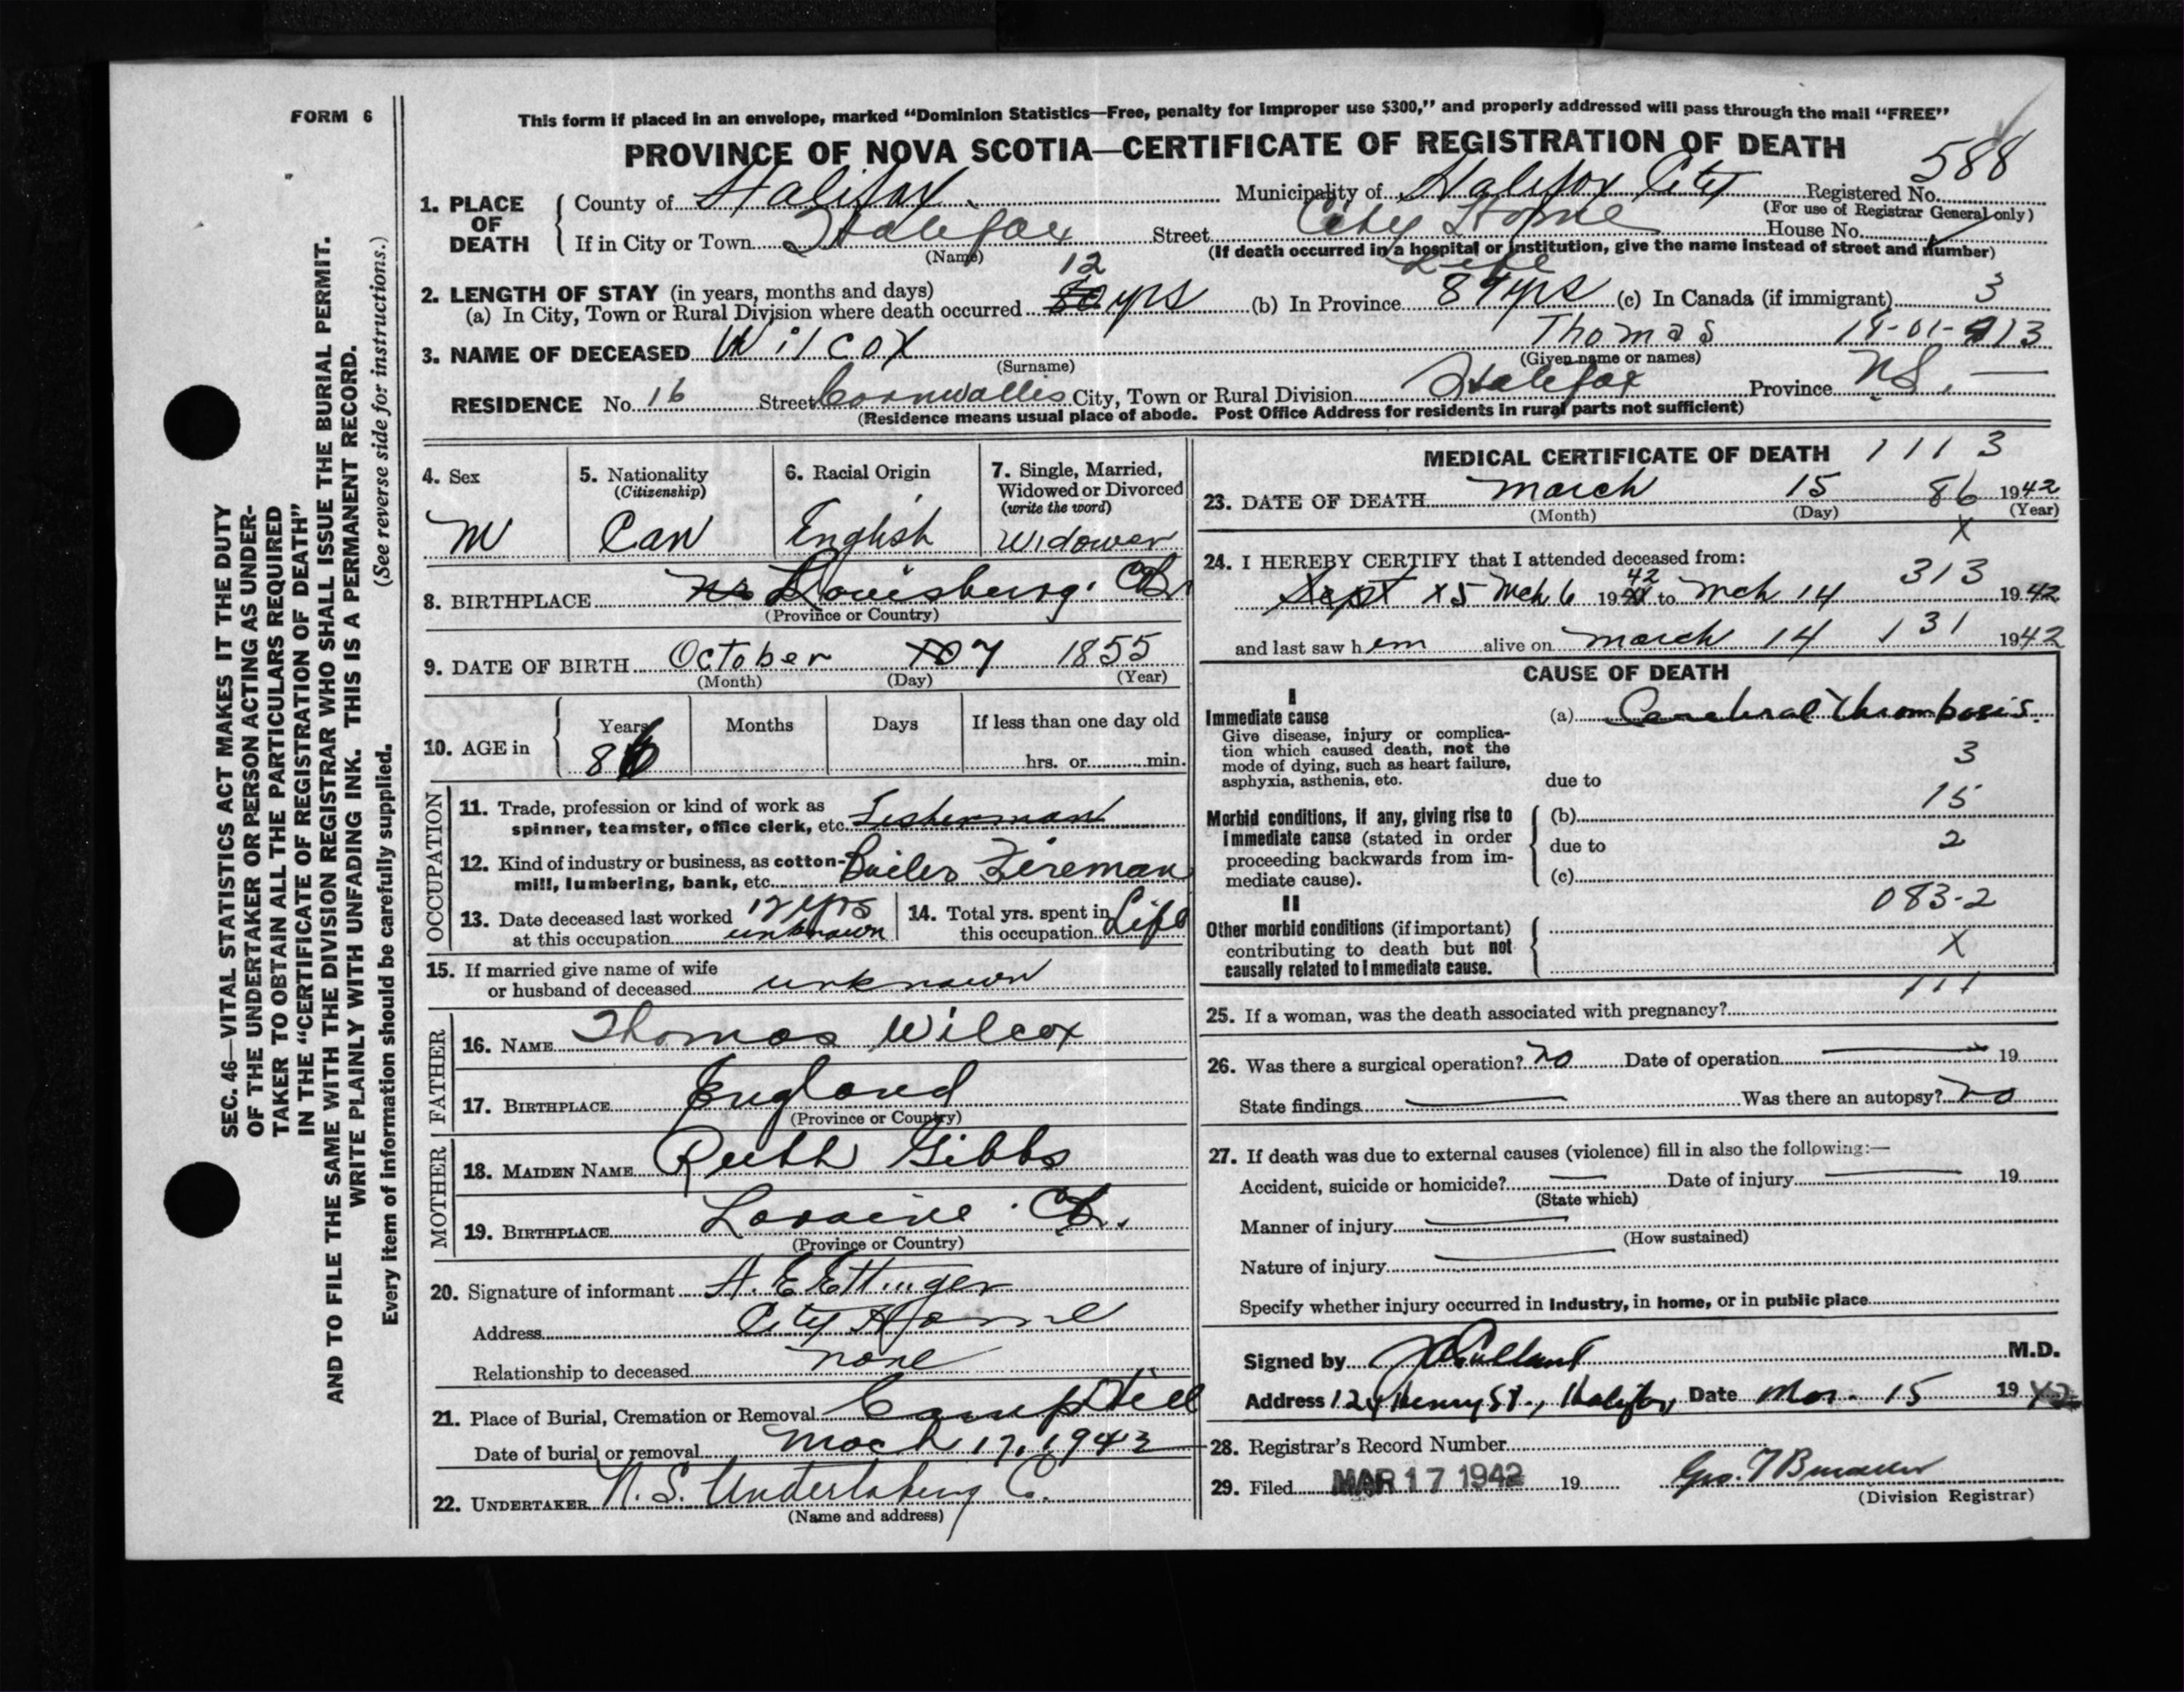 FORM 6
This form if placed in an envelope, marked "Dominion Statistics—Free, penalty for improper use $300," and properly addressed will pass through the mail "FREE"
PROVINCE OF NOVA SCOTIA—CERTIFICATE OF REGISTRATION OF DEATH
588
1. PLACE OF DEATH
County of Halifax Municipality of Halifax City Registered No.
(For use of Registrar General only)
If in City or Town Halifax Street City Home House No.
(Name) (If death occurred in a hospital or institution, give the name instead of street and number)
2. LENGTH OF STAY (in years, months and days)
12 Life
(a) In City, Town or Rural Division where death occurred yrs (b) In Province yrs (c) In Canada (if immigrant) 3
3. NAME OF DECEASED Wilcox Thomas
(Surname) (Given name or names)
RESIDENCE No. 16 Street Cornwallis City, Town or Rural Division Halifax Province NS.
(Residence means usual place of abode. Post Office Address for residents in rural parts not sufficient)
4. Sex
M
5. Nationality
(Citizenship)
Can
6. Racial Origin
English
7. Single, Married,
Widowed or Divorced
(write the word)
Widower
8. BIRTHPLACE Louisburg. CB
(Province or Country)
9. DATE OF BIRTH October 7 1855
(Month) (Day) (Year)
10. AGE in
Years Months Days If less than one day old
86 hrs. or min.
OCCUPATION
11. Trade, profession or kind of work as
spinner, teamster, office clerk, etc. Fisherman
12. Kind of industry or business, as cotton-
mill, lumbering, bank, etc. Boiler Fireman
13. Date deceased last worked 12 yrs
at this occupation unknown
14. Total yrs. spent in
this occupation Life
15. If married give name of wife
or husband of deceased unknown
FATHER
16. NAME Thomas Wilcox
17. BIRTHPLACE England
(Province or Country)
MOTHER
18. MAIDEN NAME Ruth Gibbs
19. BIRTHPLACE Loraine. CB.
(Province or Country)
20. Signature of informant A. E Ettinger
Address City Home
Relationship to deceased none
21. Place of Burial, Cremation or Removal Camp Hill
Date of burial or removal Mach 17, 1942
22. UNDERTAKER N. S. Undertaking Co.
(Name and address)
MEDICAL CERTIFICATE OF DEATH 1113
23. DATE OF DEATH March 15 86 1942
(Month) (Day) (Year)
X
24. I HEREBY CERTIFY that I attended deceased from:
313
Mch 6 1942 to Mch 14 1942
and last saw him alive on March 14 131 1942
CAUSE OF DEATH
I
Immediate cause (a) Cerebral Thrombosis.
Give disease, injury or complica-
tion which caused death, not the
mode of dying, such as heart failure,
asphyxia, asthenia, etc.
3
due to
15
Morbid conditions, if any, giving rise to
immediate cause (stated in order
proceeding backwards from im-
mediate cause).
(b)
due to 2
(c)
083-2
II
Other morbid conditions (if important)
contributing to death but not
causally related to immediate cause.
X
111
25. If a woman, was the death associated with pregnancy?
26. Was there a surgical operation? No Date of operation 19
State findings Was there an autopsy? No
27. If death was due to external causes (violence) fill in also the following:—
Accident, suicide or homicide? Date of injury 19
(State which)
Manner of injury
(How sustained)
Nature of injury
Specify whether injury occurred in industry, in home, or in public place
Signed by M.D.
Address Henry St., Halifax, Date Mar. 15 1942
28. Registrar's Record Number
29. Filed MAR 17 1942 19
(Division Registrar)
SEC. 46—VITAL STATISTICS ACT MAKES IT THE DUTY
OF THE UNDERTAKER OR PERSON ACTING AS UNDER-
TAKER TO OBTAIN ALL THE PARTICULARS REQUIRED
IN THE "CERTIFICATE OF REGISTRATION OF DEATH"
AND TO FILE THE SAME WITH THE DIVISION REGISTRAR WHO SHALL ISSUE THE BURIAL PERMIT.
WRITE PLAINLY WITH UNFADING INK. THIS IS A PERMANENT RECORD.
(See reverse side for instructions.)
Every item of information should be carefully supplied.